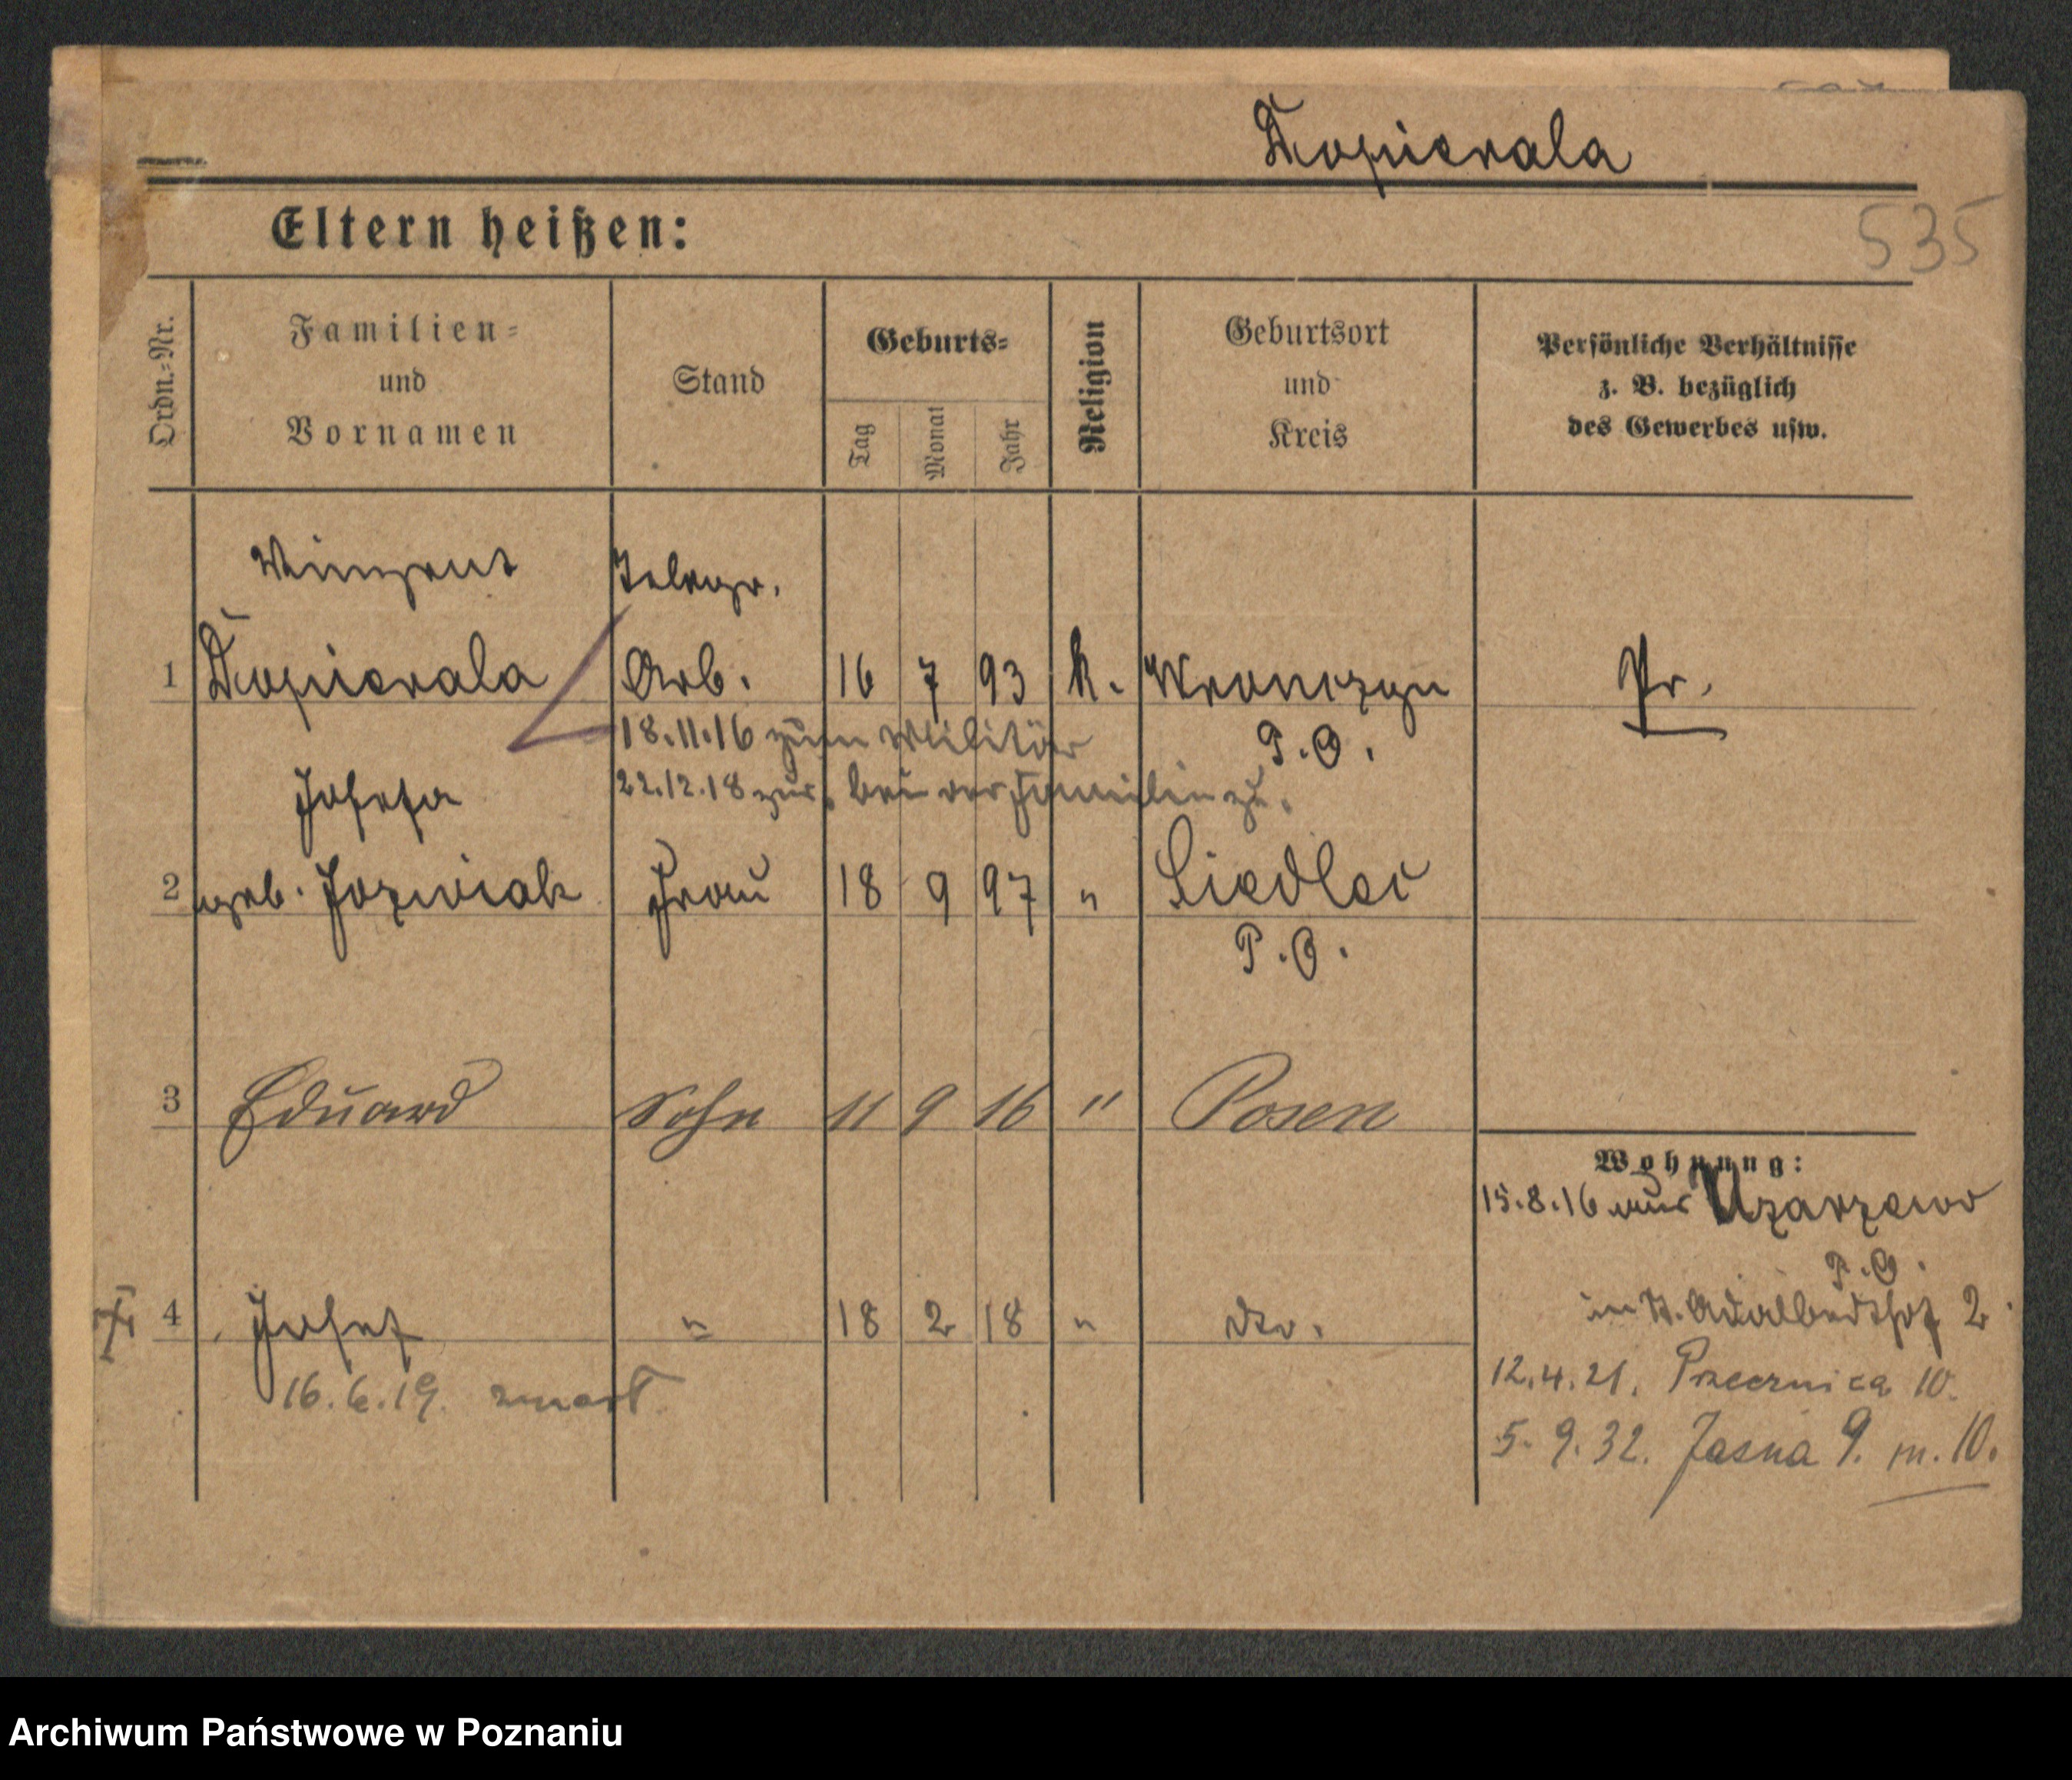 Dopierala
535
Eltern heißen:
Ordn.-Nr.
Familien-
und
Vornamen
Stand
Geburts-
Tag
Monat
Jahr
Religion
Geburtsort
und
Kreis
Persönliche Verhältnisse
z. B. bezüglich
des Gewerbes usw.
Winzent Telegr.
1 Dopierala Arb. 16 7 93 K. Wronczyn Pr.
18.11.16 zum Militär P.O.
22.12.18 zur. bei der Familie zu.
Josefa
2 geb. Jozwiak Frau 18 9 97 " Siedlec
P.O.
3 Eduard Sohn 11 9 16 " Posen
Wohnung:
15.8.16 aus Uzarzewo
P.O.
in St. Adalbertstr 2
4 Josef " 18 2 18 " dto.
16.6.19. zmarł
12.4.21. Przecznica 10.
5.9.32. Jasna 9. m. 10.
Archiwum Państwowe w Poznaniu